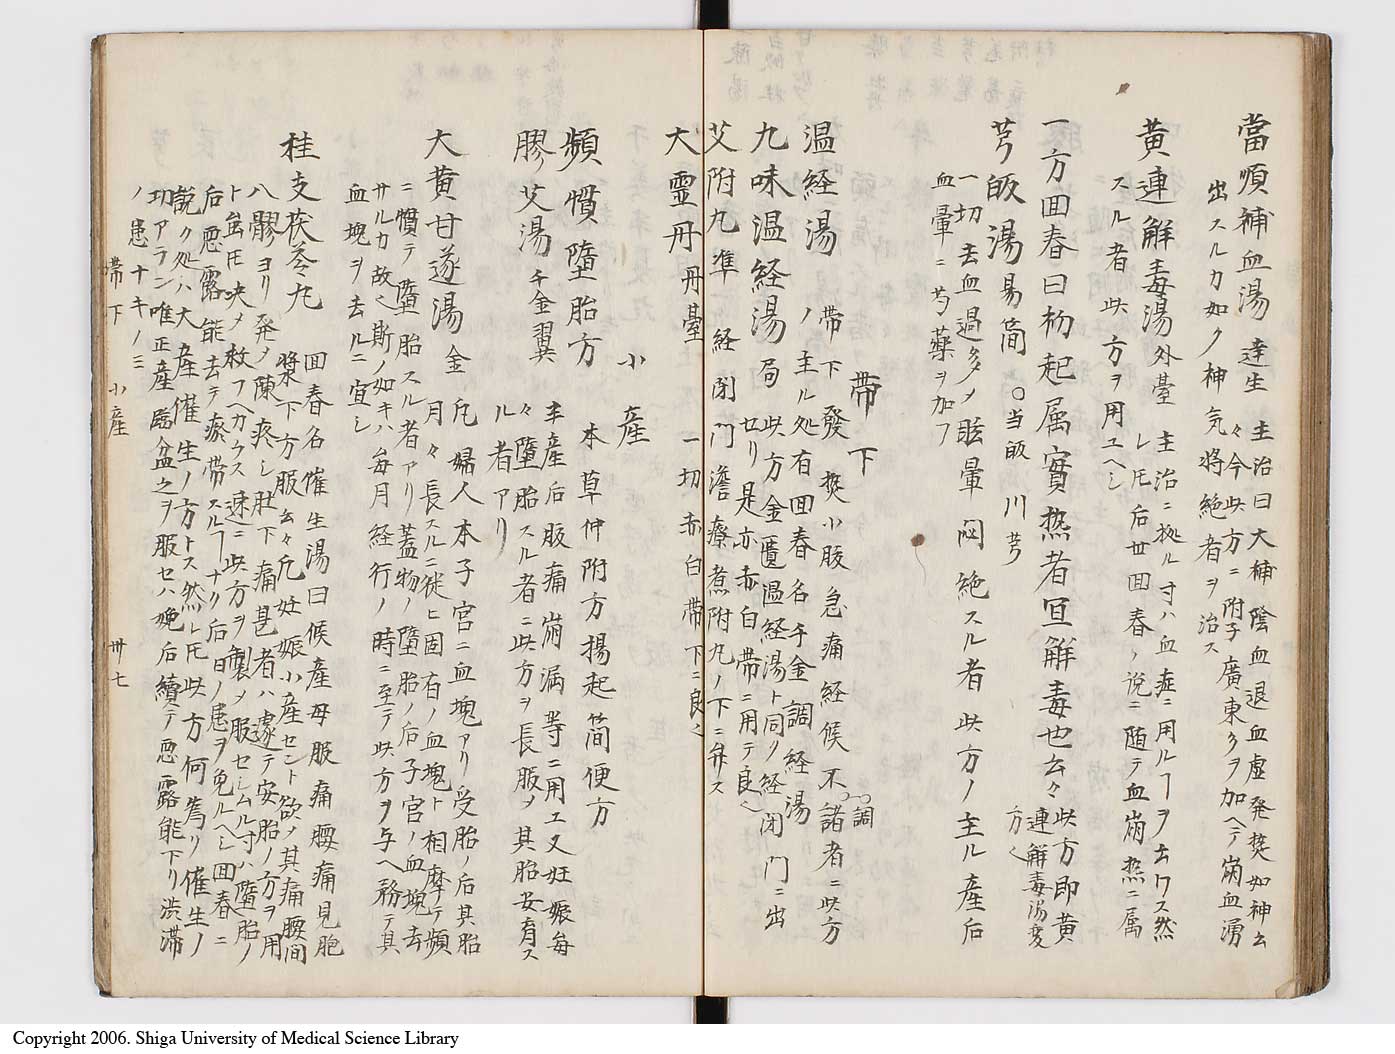 當順補血湯 達生 主治曰大補陰血退血虚発熱如神云
々今此方ニ附子廣東タヲ加ヘテ崩血湧
出スルカ如ク神気將絶者ヲ治ス
黄連解毒湯 外臺 主治ニ拠ル寸ハ血症ニ用ルヿヲ云ワス然
レ𪜈后世回春ノ说ニ随テ血崩熱ニ属
スル者此方ヲ用ユヘシ
一方回春曰初起属實熱者宜解毒也云々 此方即黄
連解毒湯変
方
芎皈湯 易簡 ○当皈 川芎
一切去血過多〆眩暈悶絶スル者此方ノ主ル産后
血暈ニ芍藥ヲ加フ
帶下
温経湯 帶下發熱小腹急痛経候不調諸者ニ此方
ノ主ル処有回春名千金調経湯
九味温経湯 局 此方金匱温経湯ト同ク経閉門ニ出
セリ是亦赤白帶ニ用テ良
艾附丸 準 経閉門澹療煮附丸ノ下ニ弁ス
大霊丹 丹臺 一切赤白帶下ニ良
小産
頻慣墮胎方 本草仲附方揚起簡便方
膠艾湯 千金翼 主産后腹痛崩漏等ニ用エ又妊娠毎
々墮胎スル者ニ此方ヲ長服〆其胎安育ス
ル者アリ
大黄甘遂湯 金 凢婦人本子宮ニ血塊アリ受胎ノ后其胎
月々長スルニ従ヒ固有ノ血塊ト相摩テ頻
ニ慣テ墮胎スル者アリ蓋物ノ墮胎ノ后子宮ノ血塊去
サルカ故斯ノ如キハ毎月経行ノ時ニ至テ此方ヲ与ヘ務テ其
血塊ヲ去ルニ宜シ
桂支茯苓丸 回春名催生湯曰候産母腹痛腰痛見胞
漿下方服云々凢妊娠小産セント欲〆其痛腰間
八髎ヨリ発ノ陳疼シ肚下痛甚者ハ遽テ安胎ノ方ヲ用
ト𪜈决〆救フヘカラス速ニ此方ヲ製〆服セシムル寸ハ墮胎ノ
后悪露能去テ瘀帶スルヿナク后日ノ患ヲ免ルヘシ回春ニ
説ク処ハ大産催生ノ方トス然レ𪜈此方何為リ催生ノ
功アラン唯正産臨盆之ヲ服セハ娩后續テ悪露能下リ渋滞
ノ患ナキノミ
帶下 小産 卅七